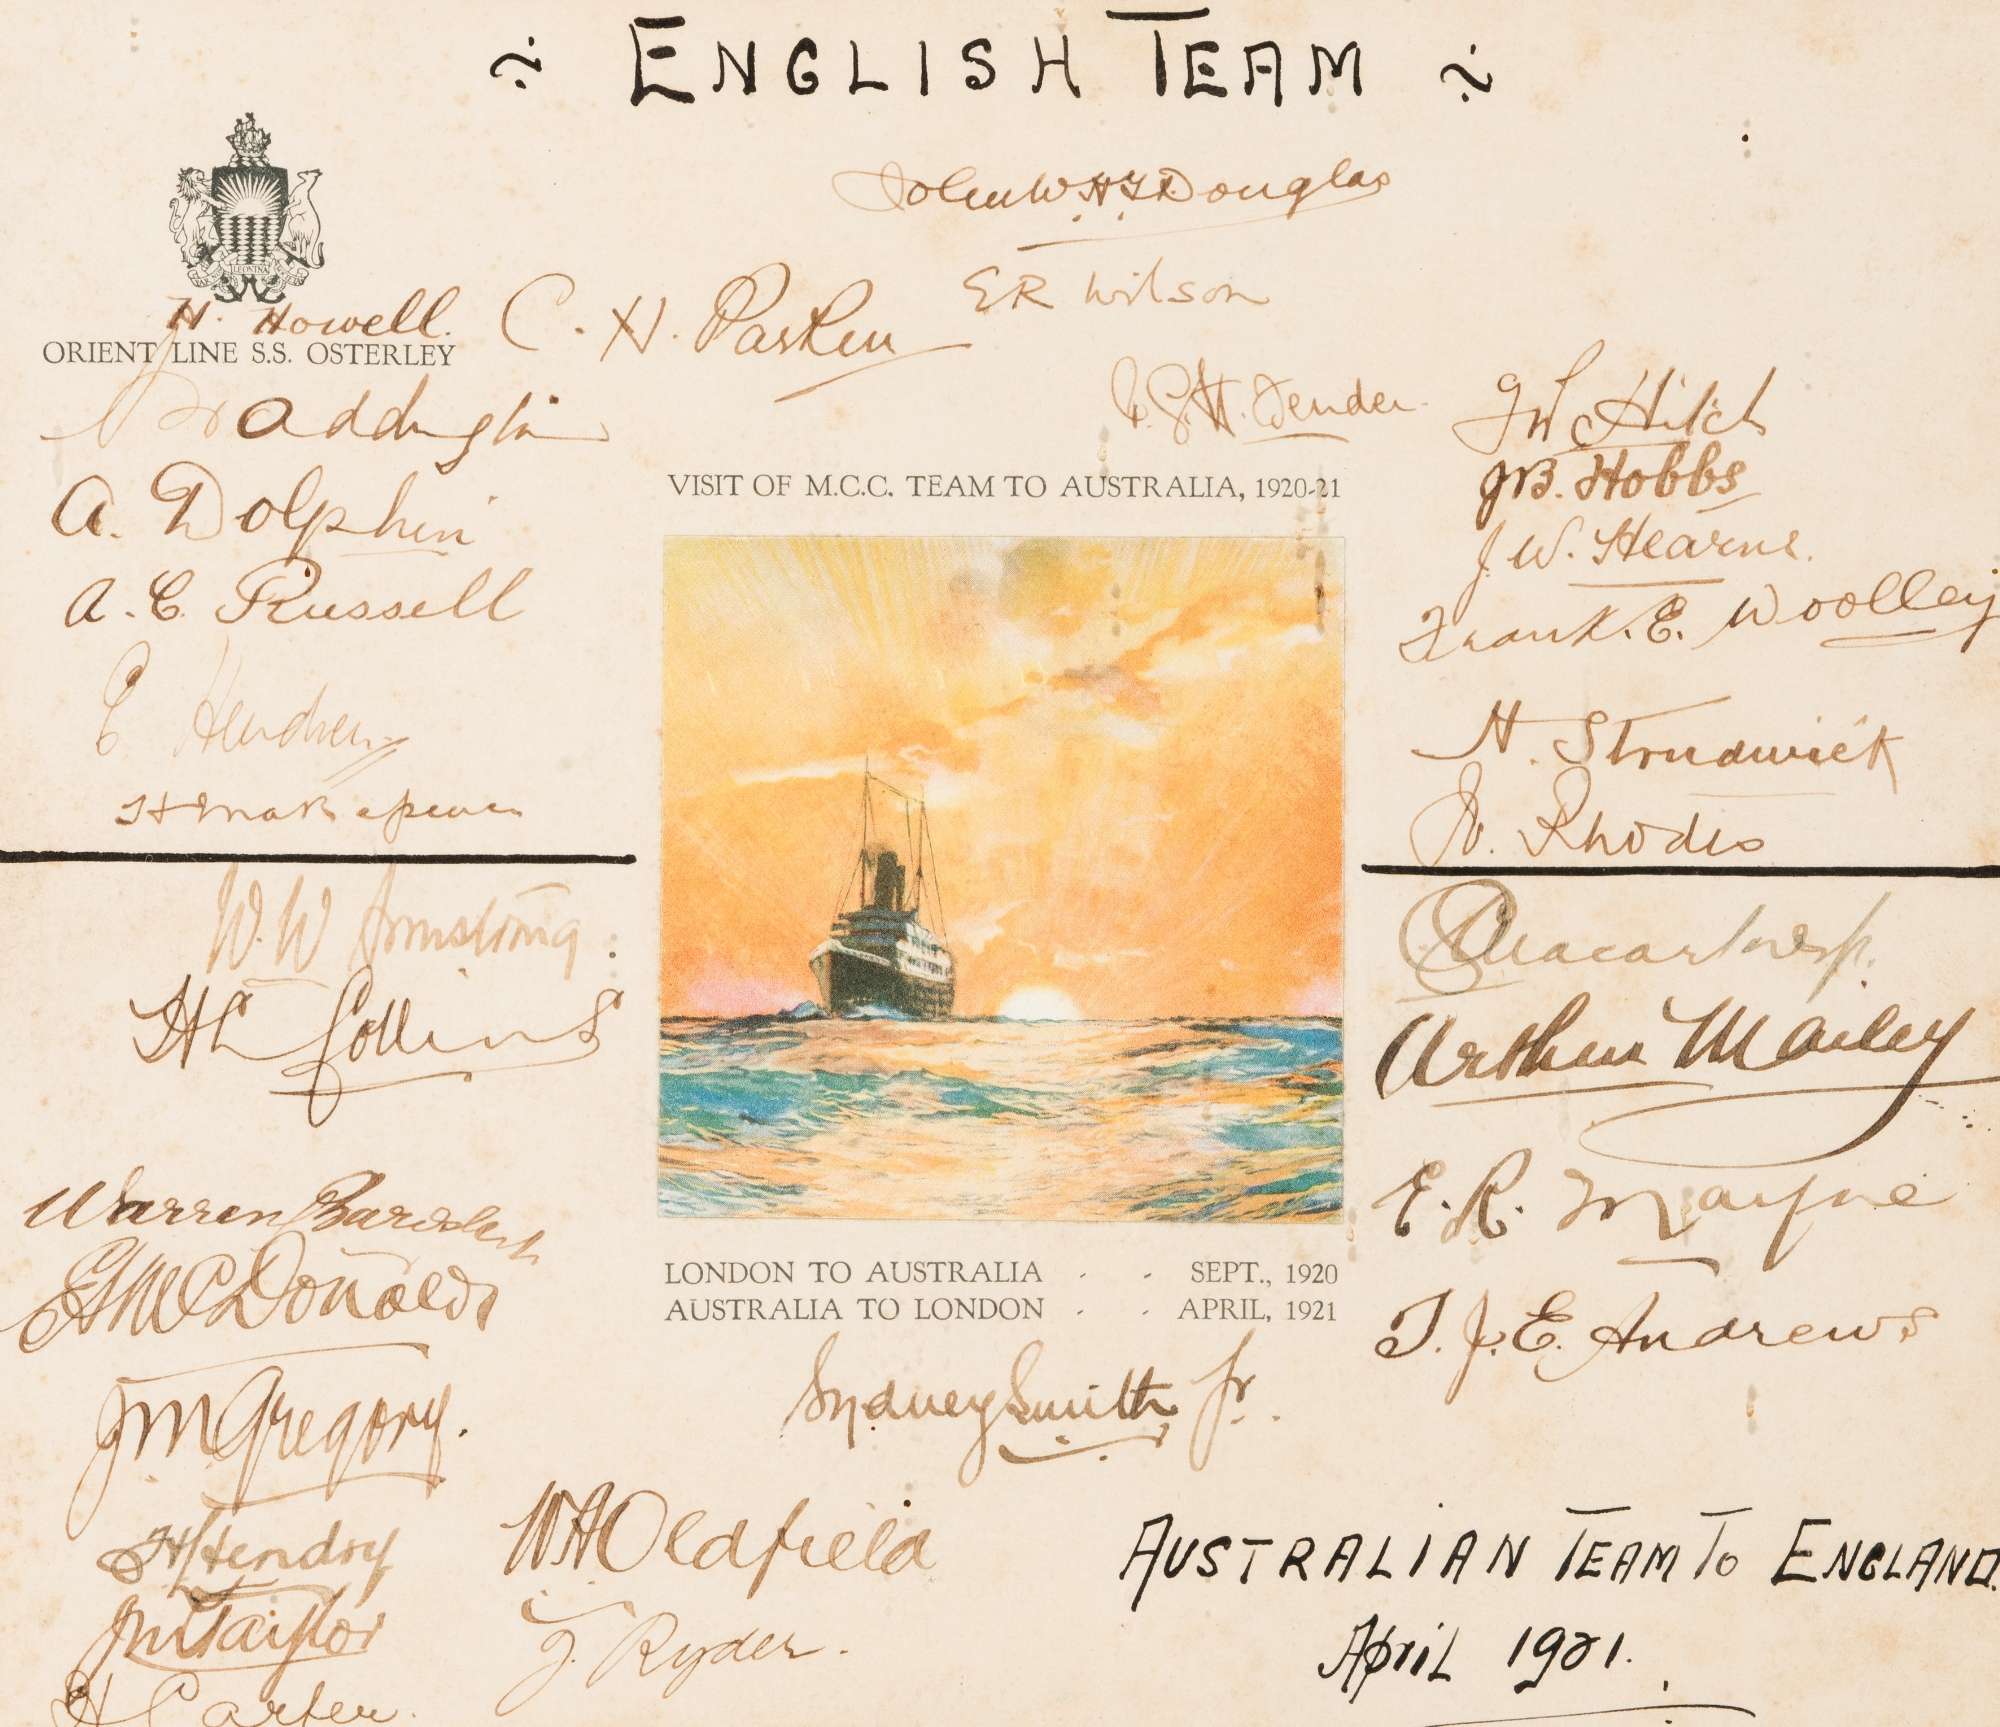 ENGLISH TEAM
John W.H.T. Douglas
E R Wilson
H. Howell.
C. H. Parkin
ORIENT LINE S.S. OSTERLEY
A. Waddington
P.G.H. Fender
J W Hitch
A. Dolphin
J B. Hobbs
VISIT OF M.C.C. TEAM TO AUSTRALIA, 1920-21
J. W. Hearne.
A. C. Russell
Frank. E. Woolley
E Hendren
H. Strudwick
H Makepeace
W. Rhodes
W. W Armstrong
C G Macartney
H L Collins
Arthur Mailey
Warren Bardsley
E. R. Mayne
E A McDonald
LONDON TO AUSTRALIA - - SEPT., 1920
AUSTRALIA TO LONDON - - APRIL, 1921
T. J. E. Andrews
J M Gregory.
Sydney Smith Jr.
H Hendry
W A Oldfield
AUSTRALIAN TEAM TO ENGLAND.
J M Taylor
J. Ryder.
April 1921.
H Carter.